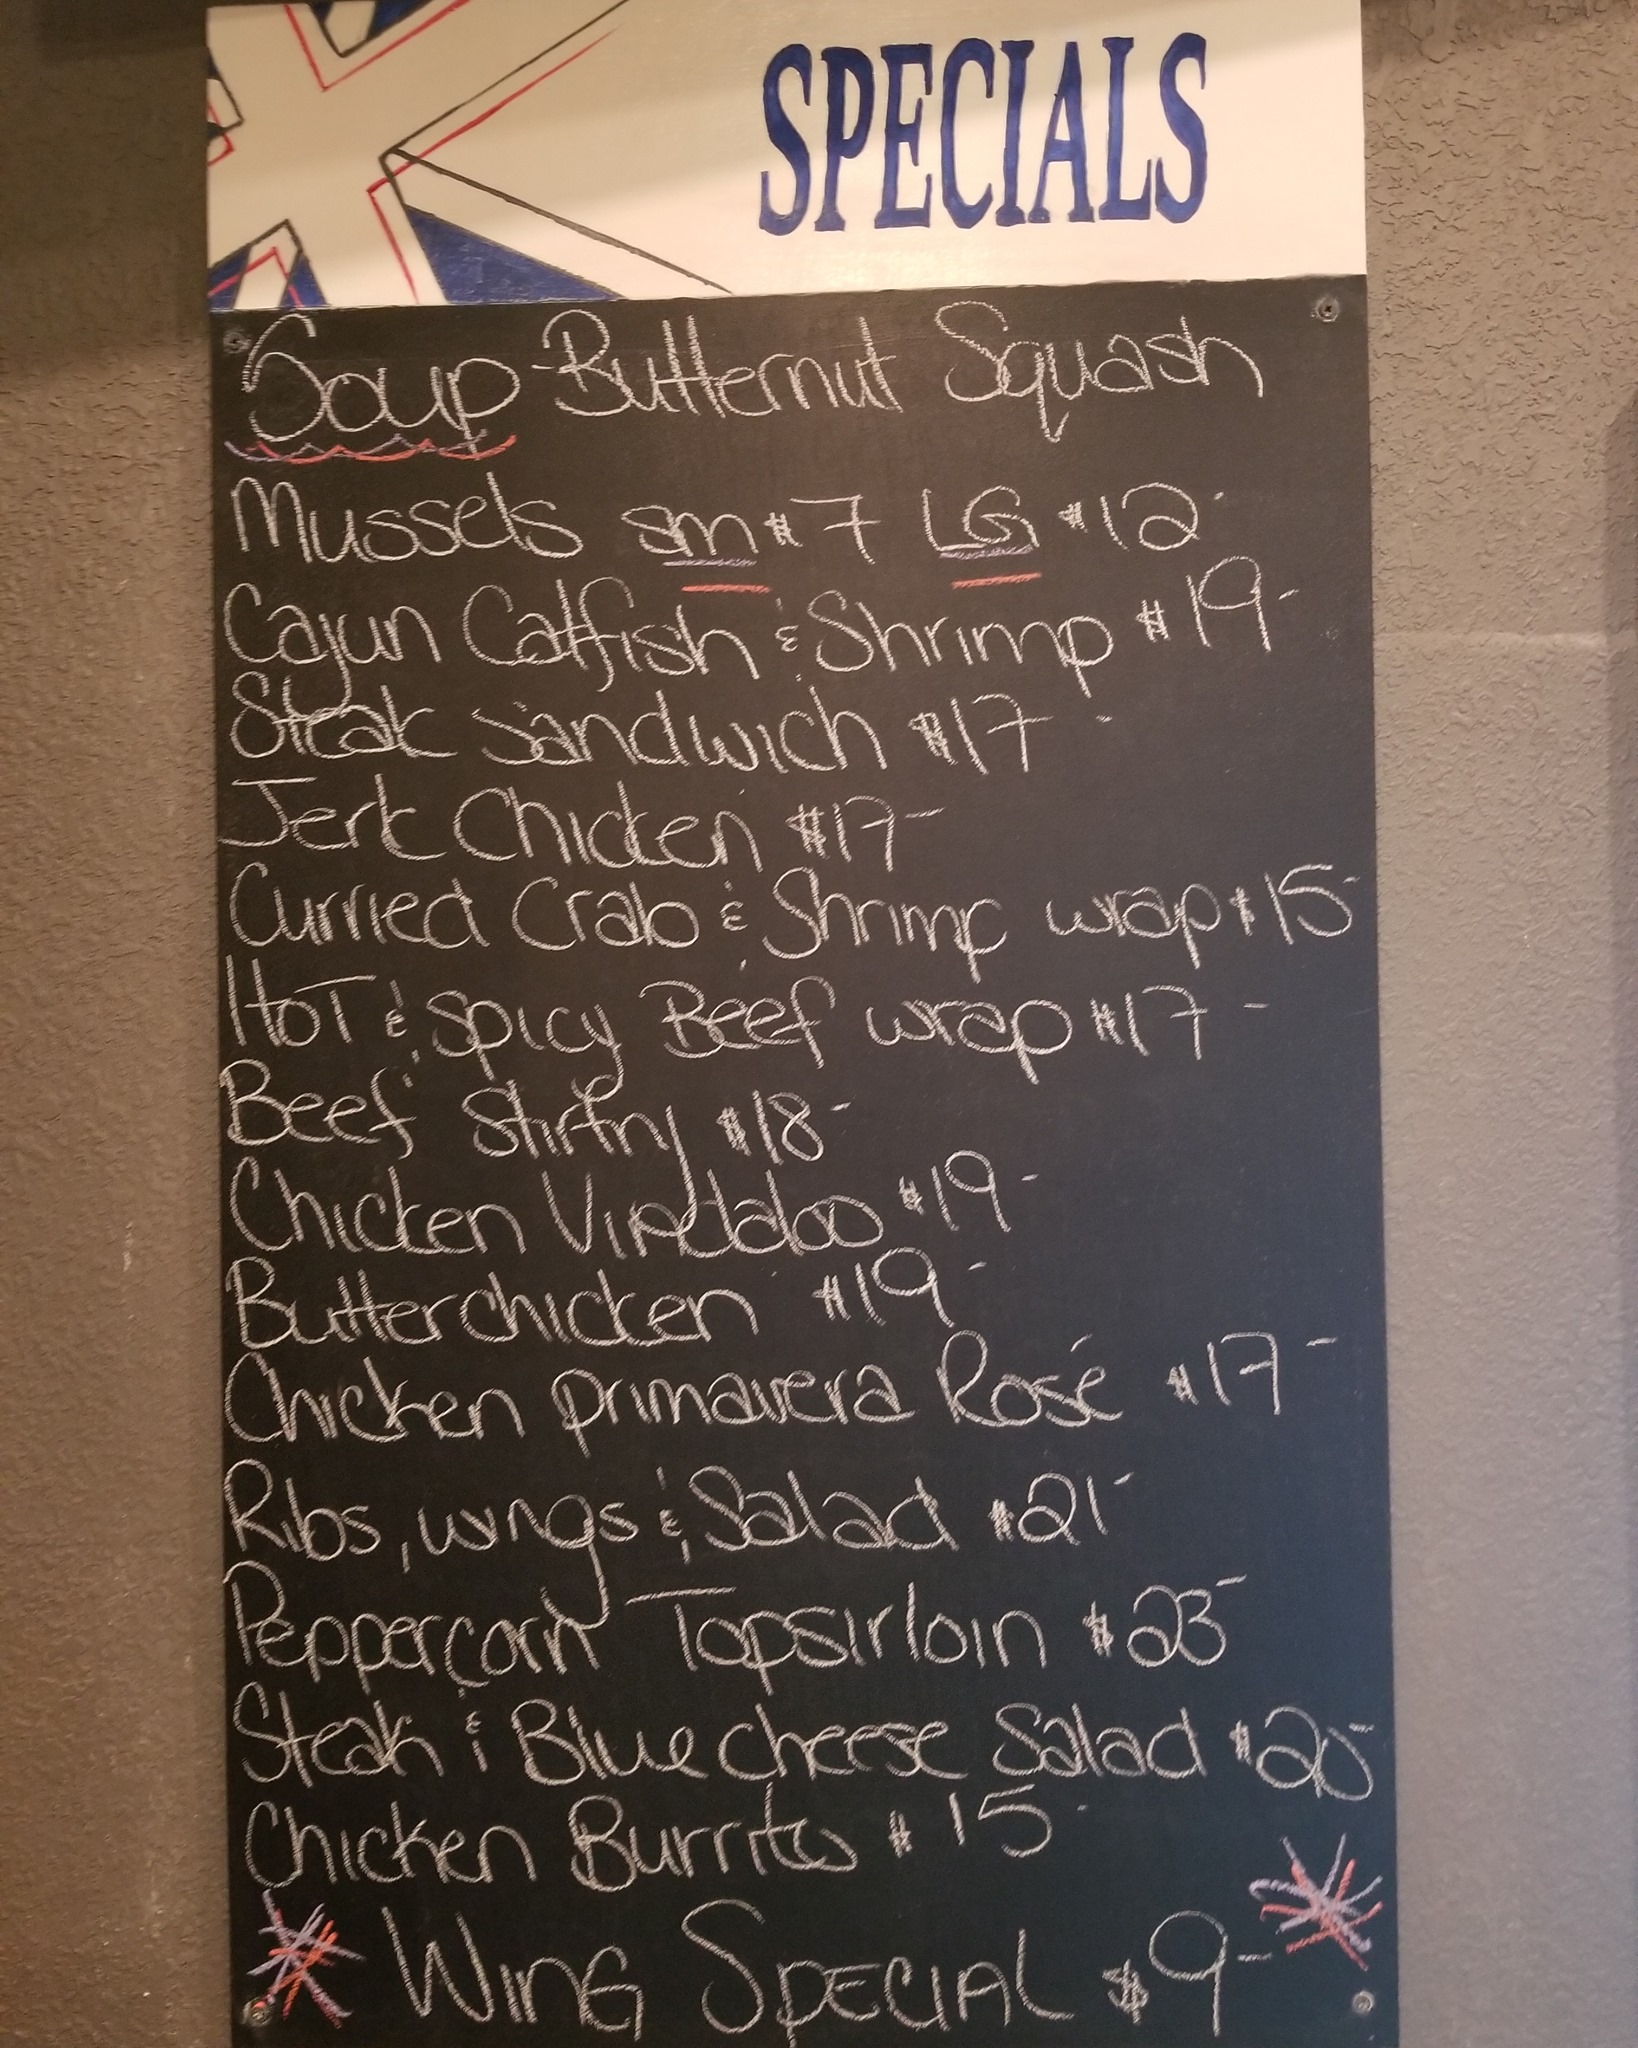 SPECIALS
Soup-Butternut Squash
Mussels sm $7 LG $12
Cajun Catfish & Shrimp $19-
Steak Sandwich $17-
Jerk Chicken $17-
Curried Crab & Shrimp wrap $15-
HOT & Spicy Beef wrap $17-
Beef Stirfry $18-
Chicken Vindaloo $19-
Butterchicken $19-
Chicken primavera Rosé $17-
Ribs, wings & Salad $21-
Peppercorn Topsirloin $23-
Steak & Bluecheese Salad $20-
Chicken Burritos $15-
WING SPECIAL $9-